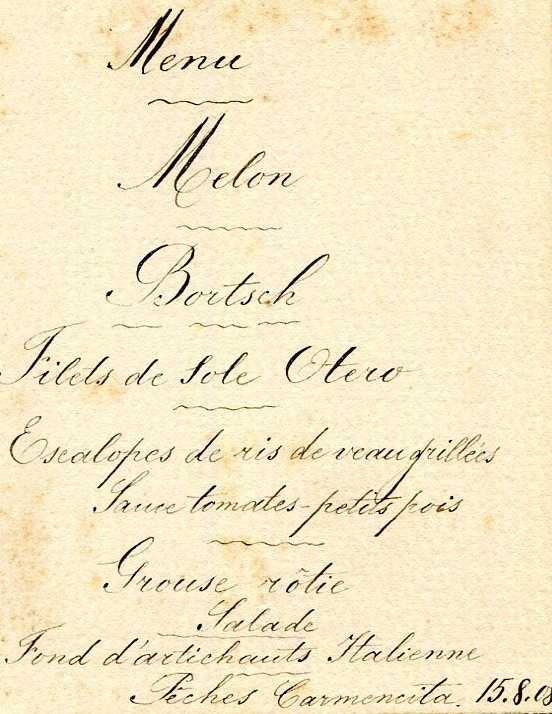 Menu
Melon
Bortsch
Filets de Sole Otero
Escalopes de ris de veau grillées
Sauce tomates - petits pois
Grouse rôtie
Salade
Fond d'artichauts Italienne
Pêches Carmencita. 15.8.08